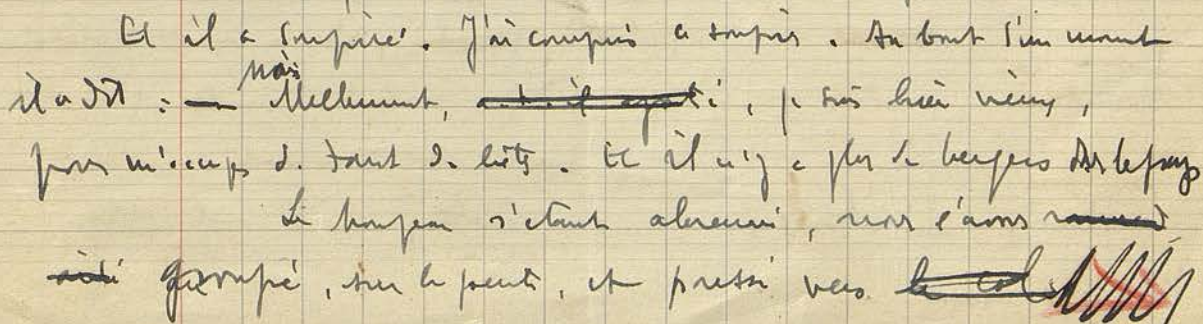 Et il a soupiré. J'ai compris ce soupir. Au bout d'un moment
il a dit : — Mais
Malheureusement, a-t-il ajouté, je suis bien vieux,
pour m'occuper de tant de bêtes. Et il n'y a plus de bergers dans le pays
Le troupeau s'étant abreuvé, nous l'avons ramené
groupé, sur la pente, et pressé vers le col